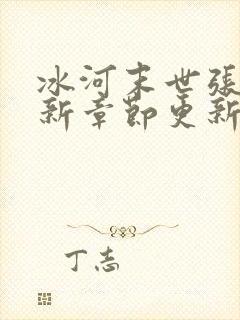 冰河末世張
新章節更新
丁志